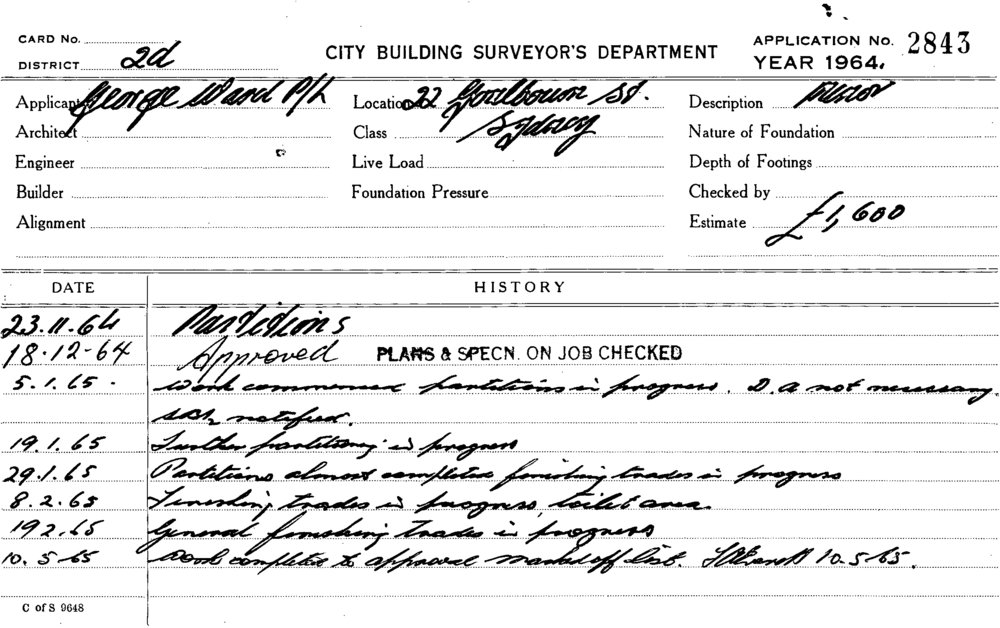 CARD No.
DISTRICT 2d
CITY BUILDING SURVEYOR'S DEPARTMENT
APPLICATION No. 2843
YEAR 1964.
Applicant George Ward P/L
Location 22 Goulbourn St.
Sydney
Description Minor
Architect
Class
Nature of Foundation
Engineer
Live Load
Depth of Footings
Builder
Foundation Pressure
Checked by
Alignment
Estimate £1,600
DATE HISTORY
23.11.64 Partitions
18.12-64 Approved PLANS & SPECN. ON JOB CHECKED
5.1.65. Work commenced partitions in progress. D.A not necessary.
notified.
19.1.65 Further partitioning in progress
29.1.65 Partitions almost completed finishing trades in progress
8.2.65 Finishing trades in progress, toilet area.
19 2.65 General finishing trades in progress
10.5.65 Work completed to approval marked off list. 10.5.65.
C of S 9648